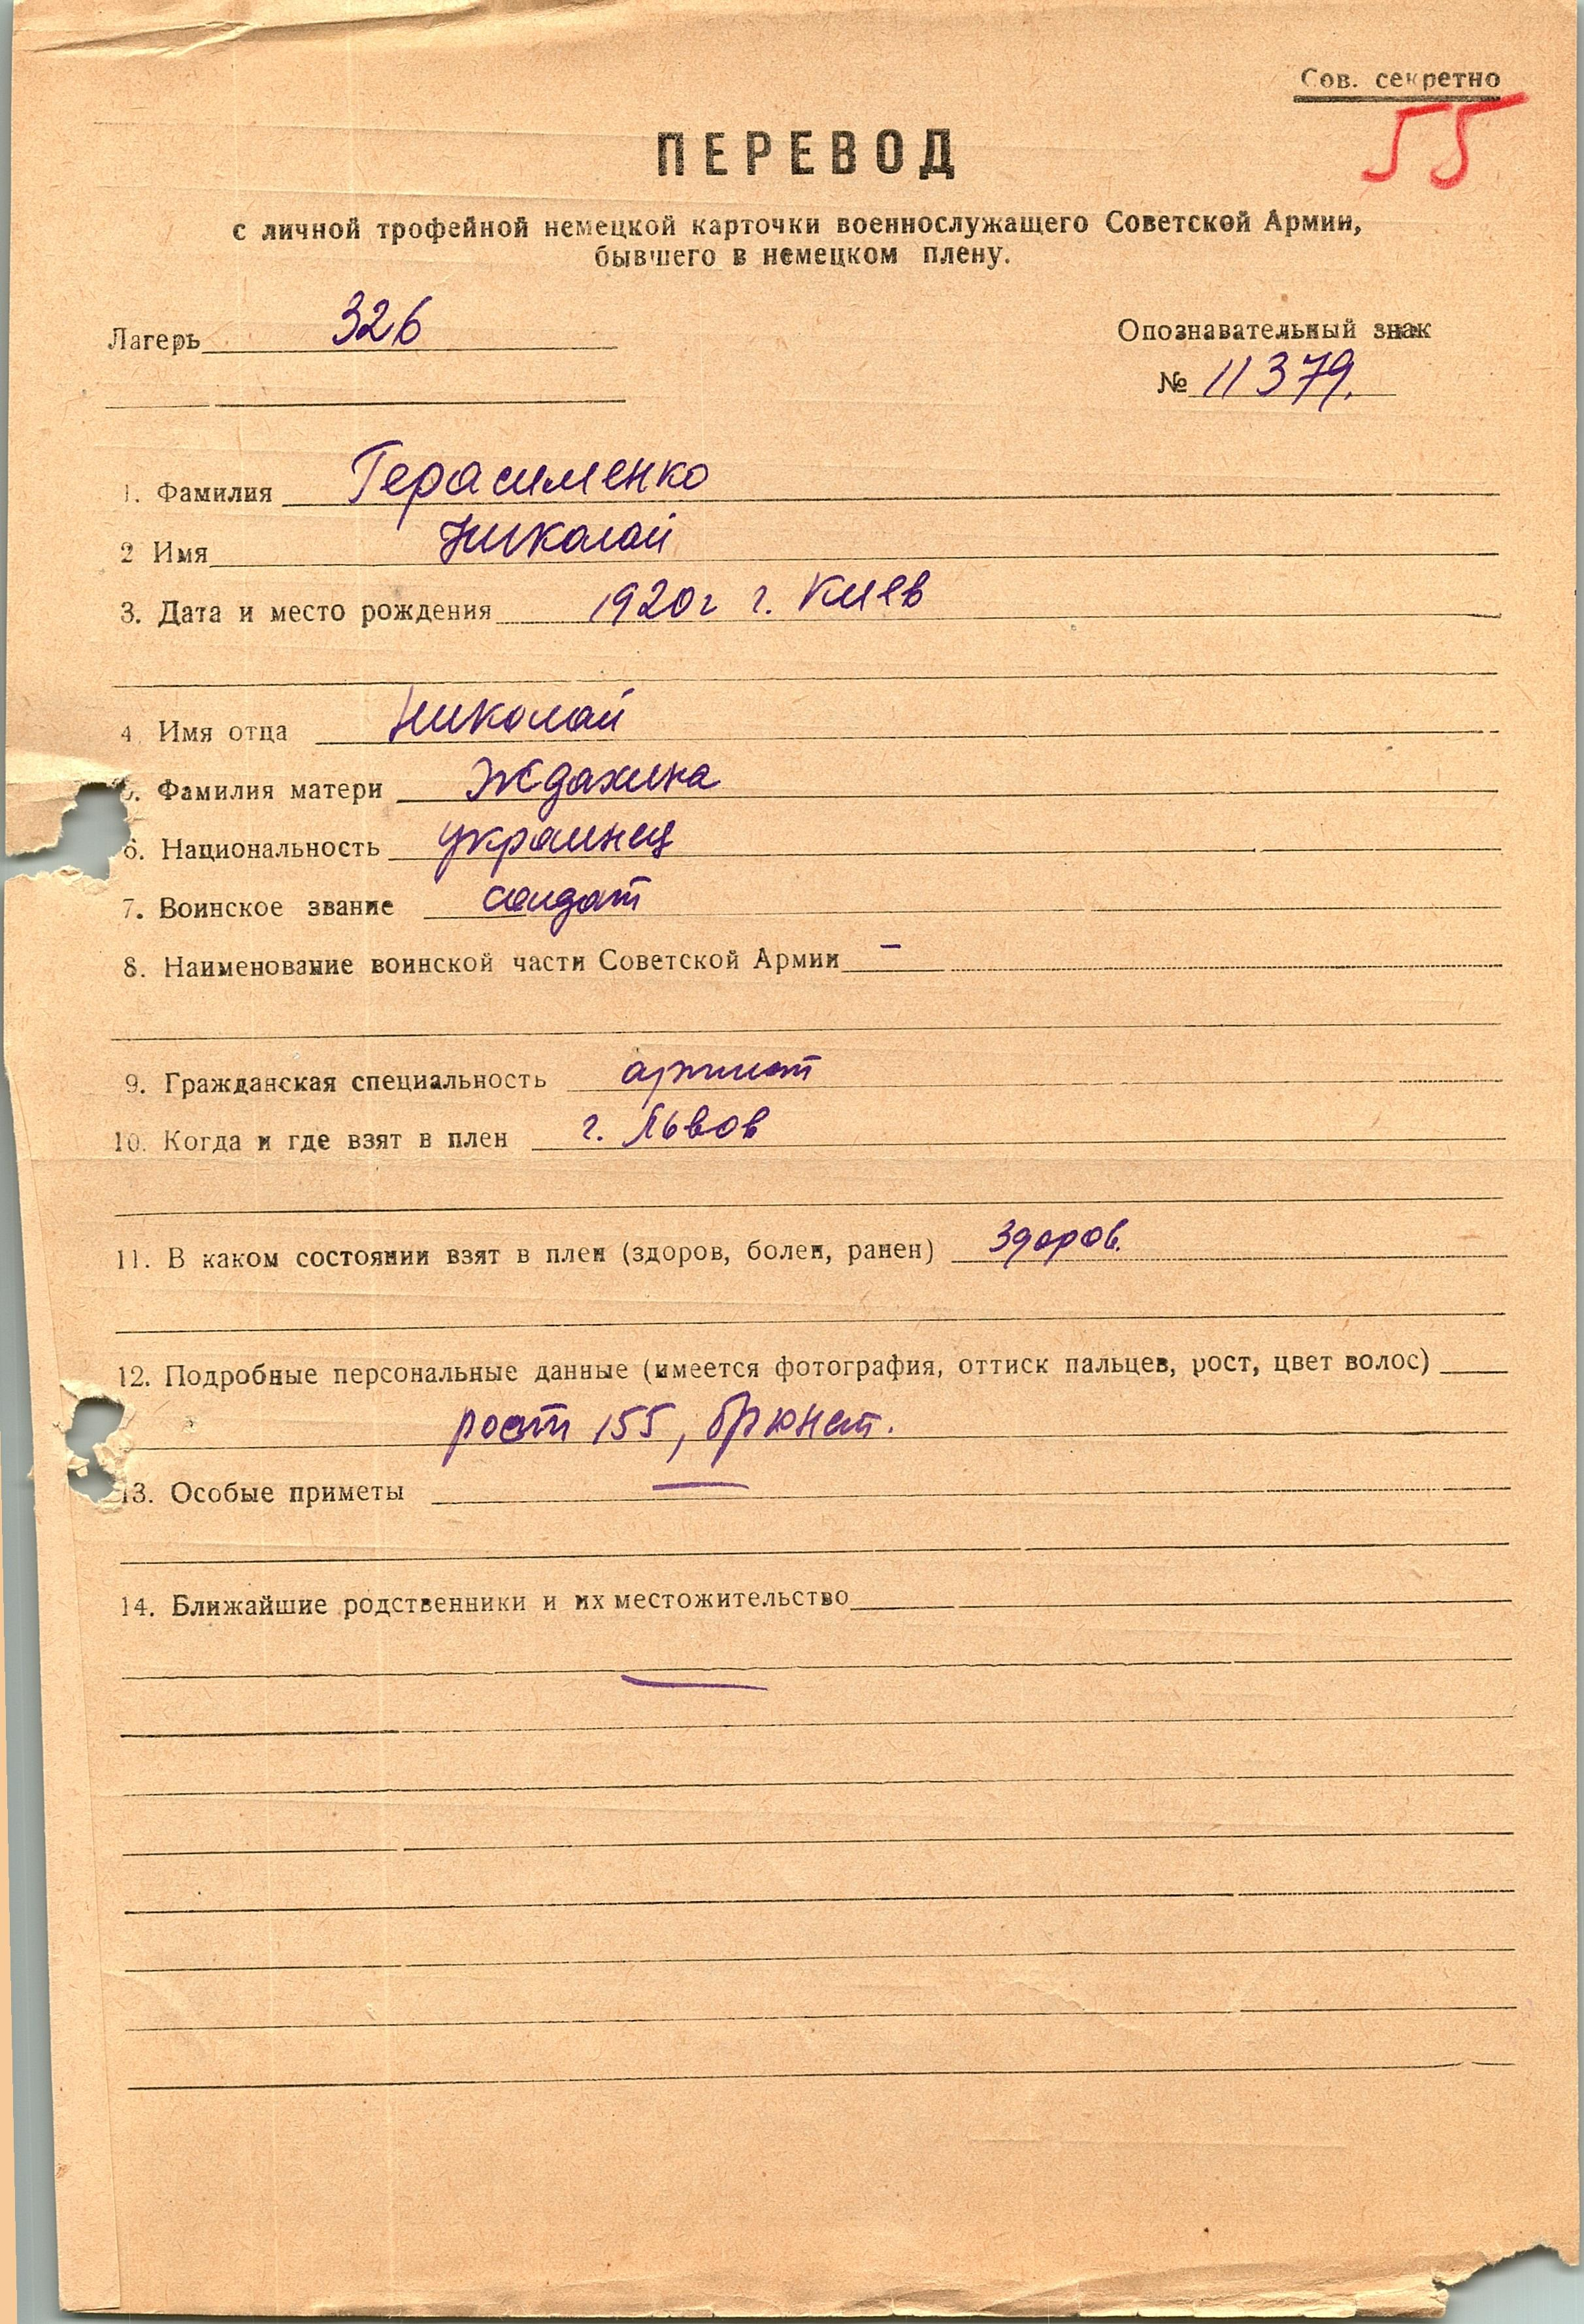 Сов. секретно
55
ПЕРЕВОД
с личной трофейной немецкой карточки военнослужащего Советской Армии,
бывшего в немецком плену.
Лагерь 326
Опознавательный знак
№ 11379.
1. Фамилия Герасименко
2 Имя Николай
3. Дата и место рождения 1920г г. Киев
4. Имя отца Николай
5. Фамилия матери Ждахина
6. Национальность украинец
7. Воинское звание солдат
8. Наименование воинской части Советской Армии –
9. Гражданская специальность артист
10. Когда и где взят в плен г. Львов
11. В каком состоянии взят в плен (здоров, болен, ранен) здоров.
12. Подробные персональные данные (имеется фотография, оттиск пальцев, рост, цвет волос)
рост 155, брюнет.
13. Особые приметы —
14. Ближайшие родственники и их местожительство
—